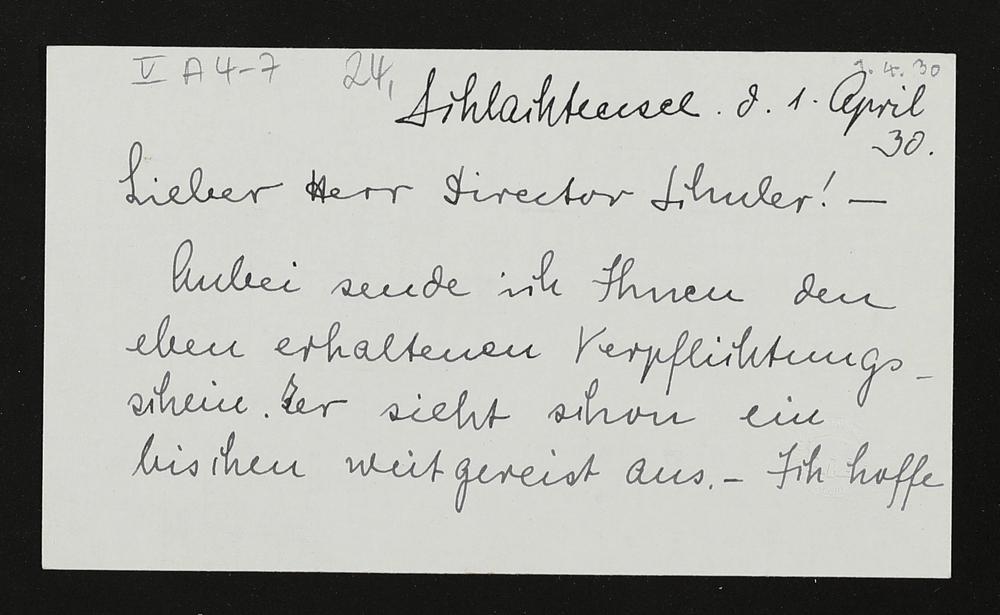 V A 4-7 24, 1.4.30
Schlachtensee. d. 1. April
30.
Lieber Herr Director Schuler! —
Anbei sende ich Ihnen den
eben erhaltenen Verpflichtungs-
schein. Er sieht schon ein
bischen weitgereist aus. – Ich hoffe